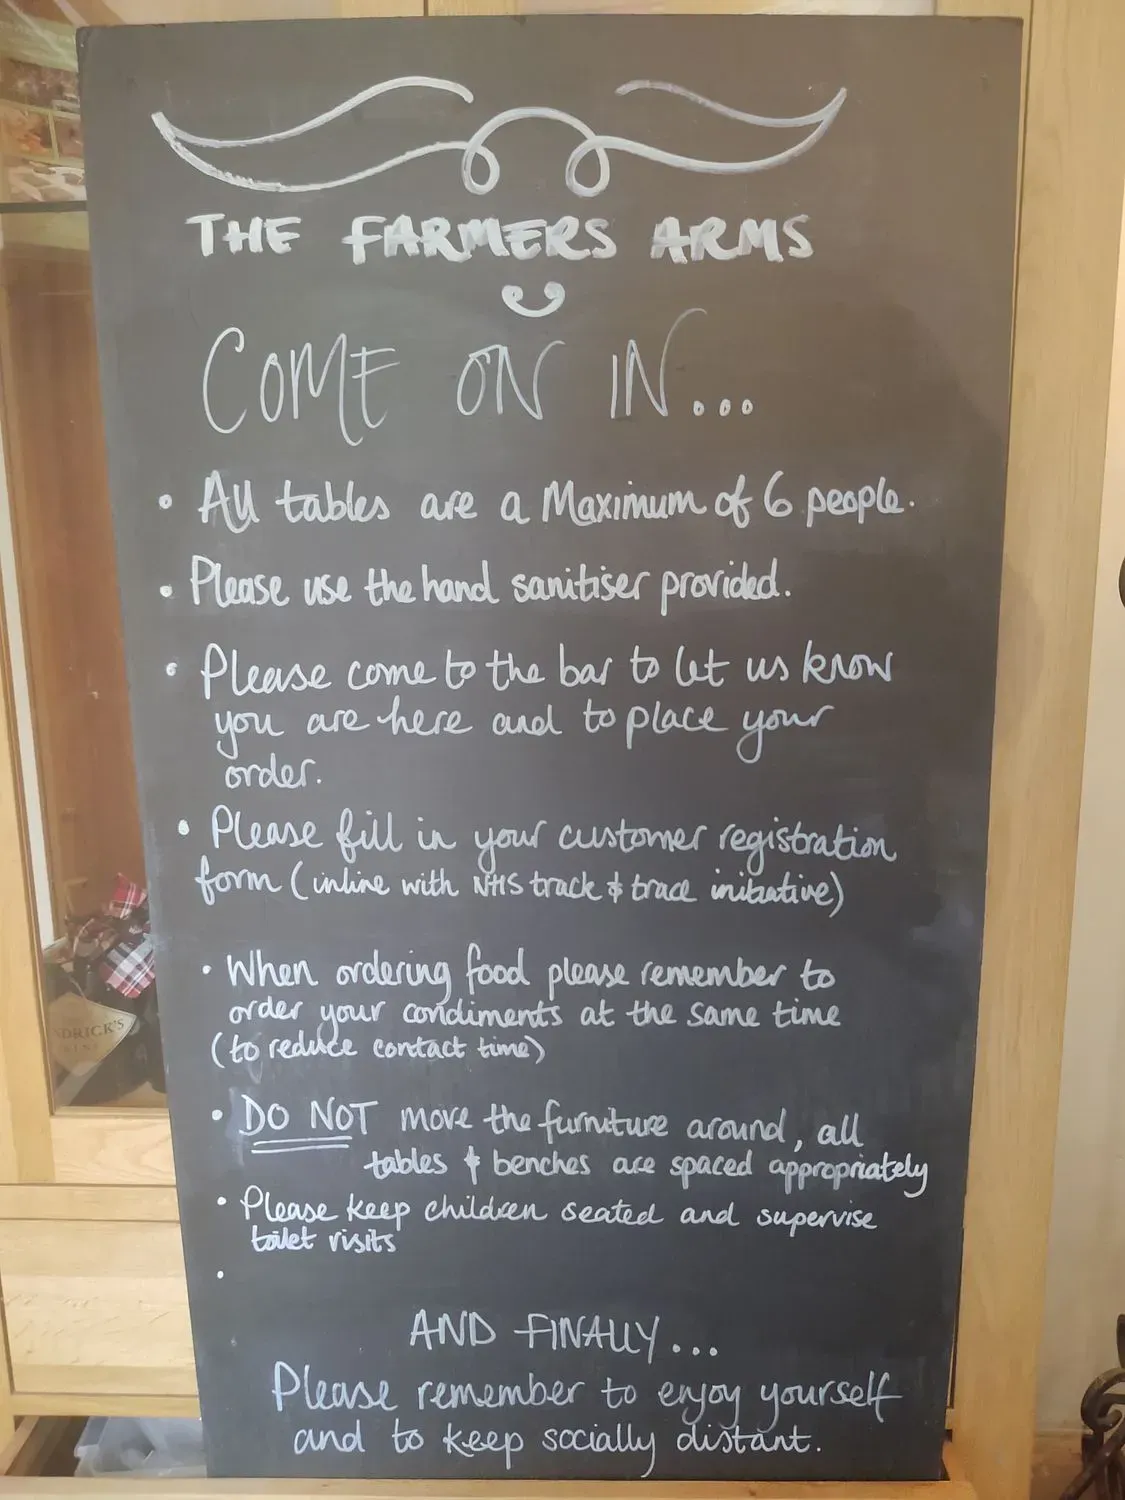 THE FARMERS ARMS
COME ON IN...
• All tables are a Maximum of 6 people.
• Please use the hand sanitiser provided.
• Please come to the bar to let us know
you are here and to place your
order.
• Please fill in your customer registration
form (inline with NHS track & trace initiative)
• When ordering food please remember to
order your condiments at the same time
(to reduce contact time)
• DO NOT move the furniture around, all
tables & benches are spaced appropriately
• Please keep children seated and supervise
toilet visits
•
AND FINALLY...
Please remember to enjoy yourself
and to keep socially distant.
DRICK'S